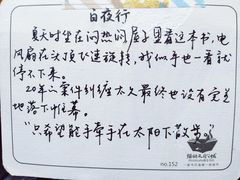 白夜行
夏天时坐在闷热的屋子里看这本书,电
风扇在头顶忽速旋转,我似乎也一看就
停不下来。
20年之案件纠缠太久最终也没有完美
地落下帷幕。
“只希望能手牵手在太阳下散步。”
猫的天空之城
no.152